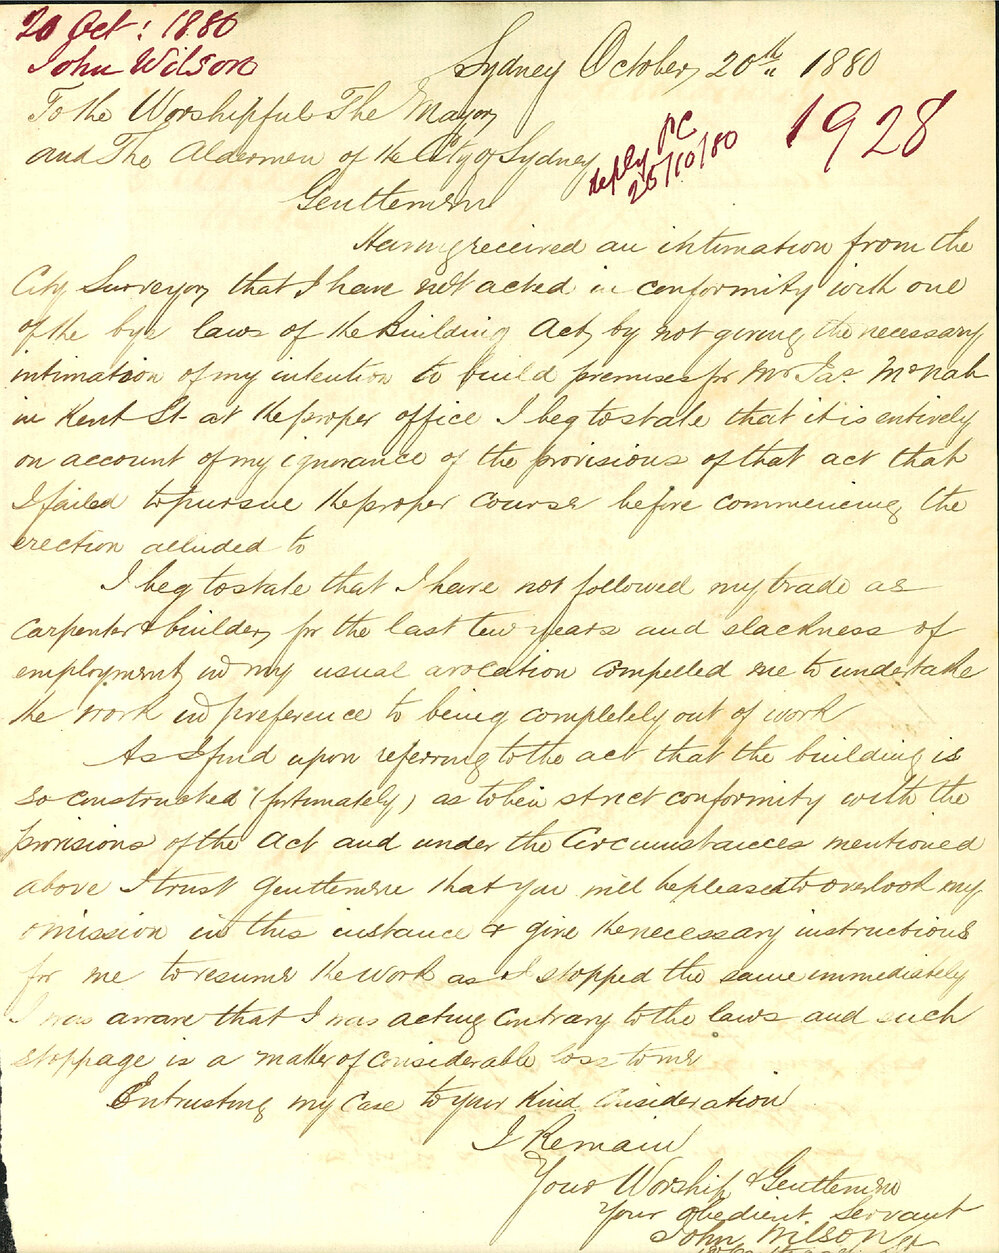 20 Oct: 1880
John Wilson
Sydney October 20th 1880
1928
reply PC
25/10/80
To the Worshipful The Mayor
and The Aldermen of the City of Sydney
Gentlemen
Having received an intimation from the
City Surveyor, that I have not acted in conformity with one
of the bye laws of the Building Act, by not giving the necessary
intimation of my intention to build premises for Mr Jas. McNab
in Kent St. at the proper office I beg to state that it is entirely
on account of my ignorance of the provisions of that act that
I failed to pursue the proper course before commencing the
erection alluded to
I beg to state that I have not followed my trade as
carpenter & builder, for the last few years and slackness of
employment in my usual avocation compelled me to undertake
the work in preference to being completely out of work
As I find upon referring to the act that the building is
so constructed (fortunately) as to be in strict conformity with the
provisions of the Act and under the Circumstances mentioned
above I trust Gentlemen that you will be pleased to overlook my
omission in this instance & give the necessary instructions
for me to resume the work as I stopped the same immediately
I was aware that I was acting contrary to the laws and such
stoppage is a matter of considerable loss to me
Entrusting my case to your kind consideration
I Remain
Your Worship & Gentlemen
Your obedient Servant
John Wilson